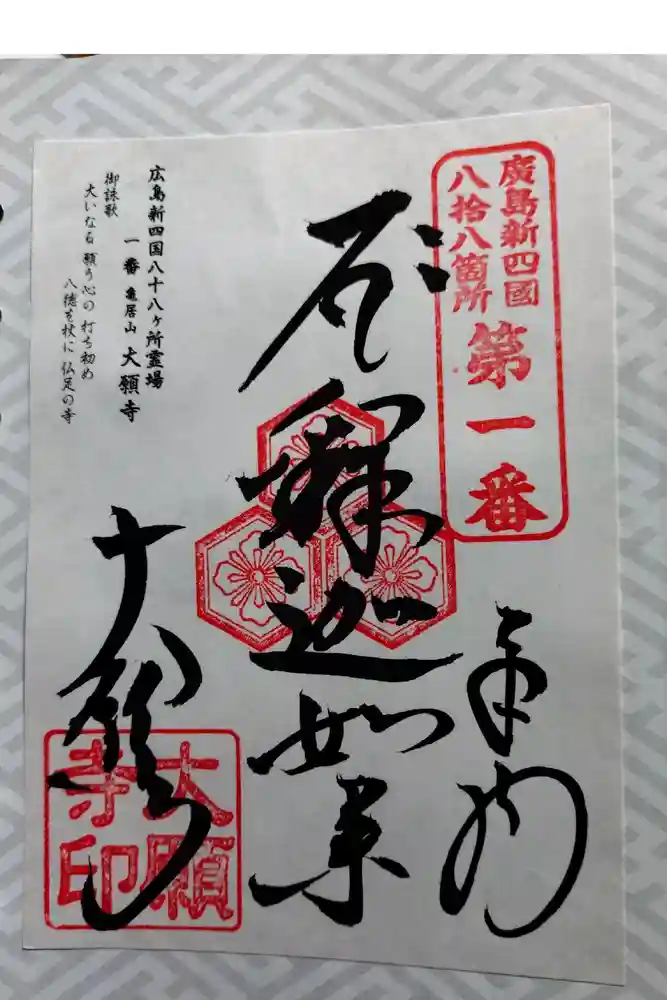 廣島新四國
八拾八箇所
第一番
釋迦如来
大願寺
大願寺印
広島新四国八十八ヶ所霊場
一番 亀居山 大願寺
御詠歌
大いなる 願う心の 打ち初め
八徳を杖に 仏足の寺